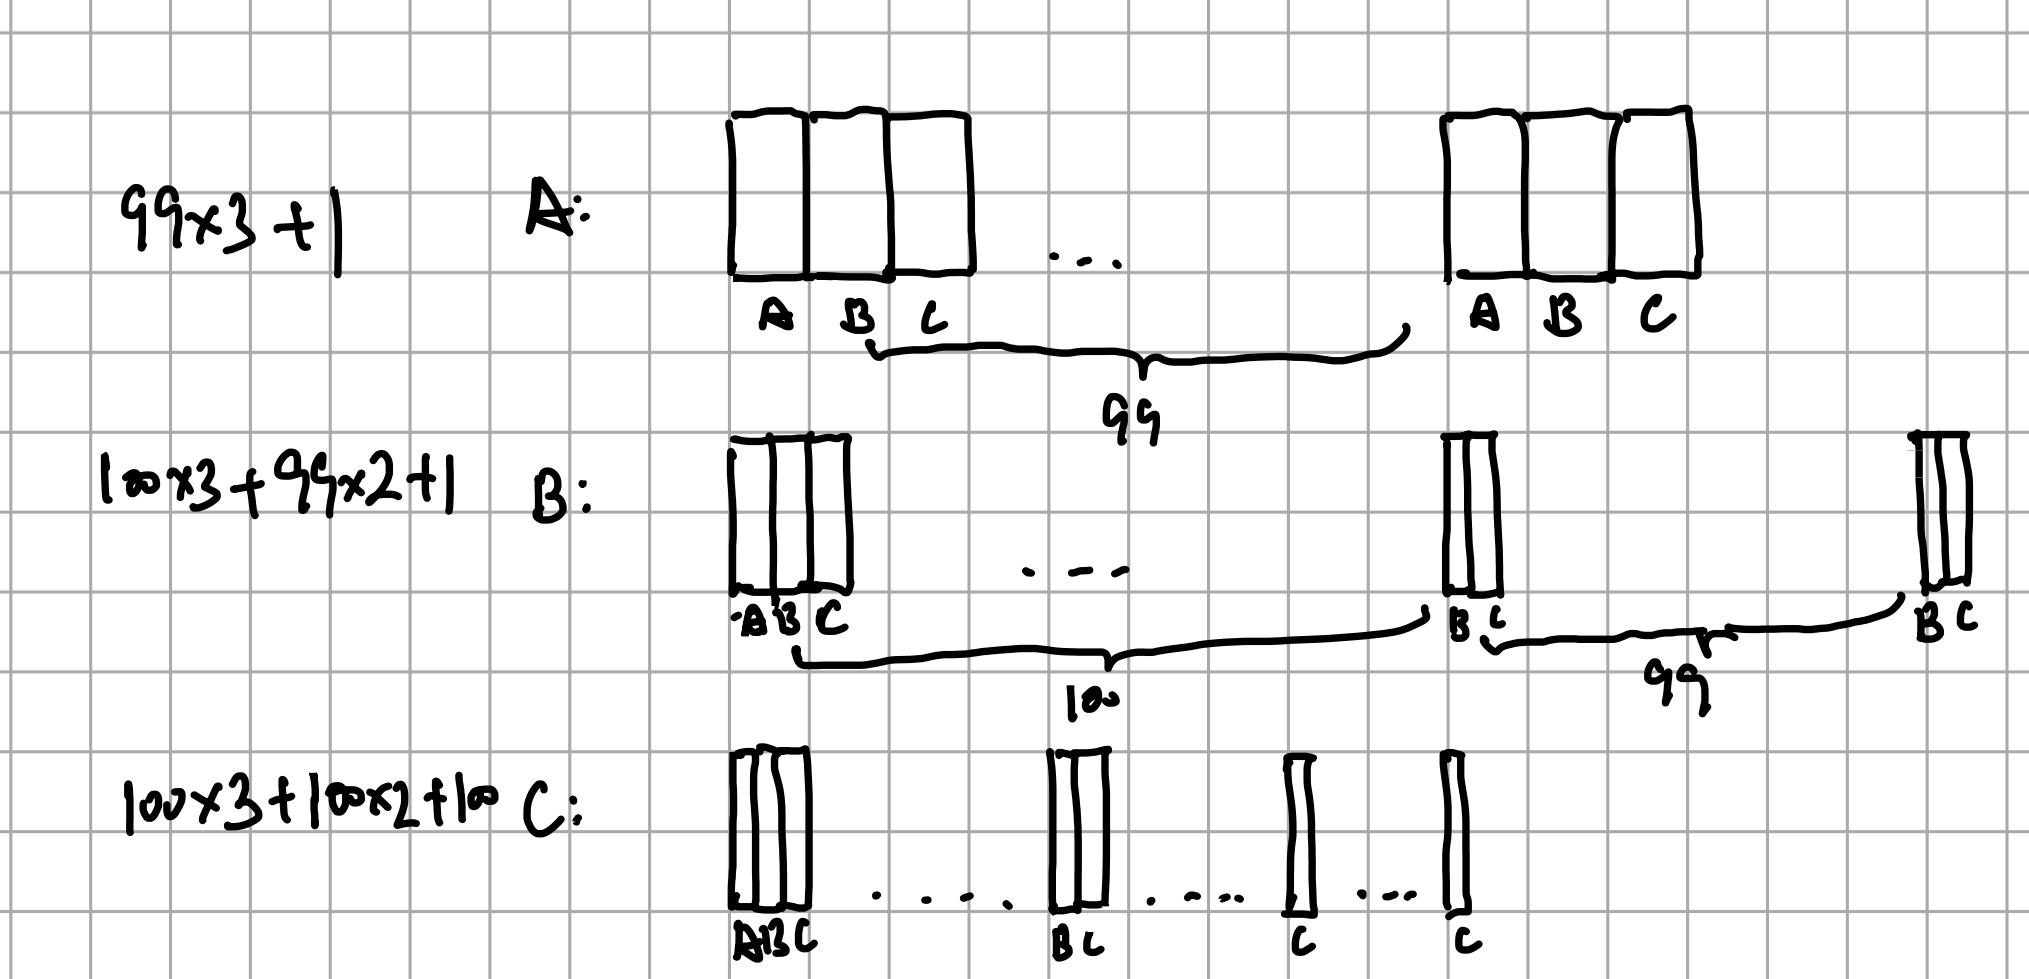 99×3+1 A: ...
A B C A B C
99
100×3+99×2+1 B: ...
A B C B C B C
100 99
100×3+100×2+100 C: .... .... ...
A B C B C C C